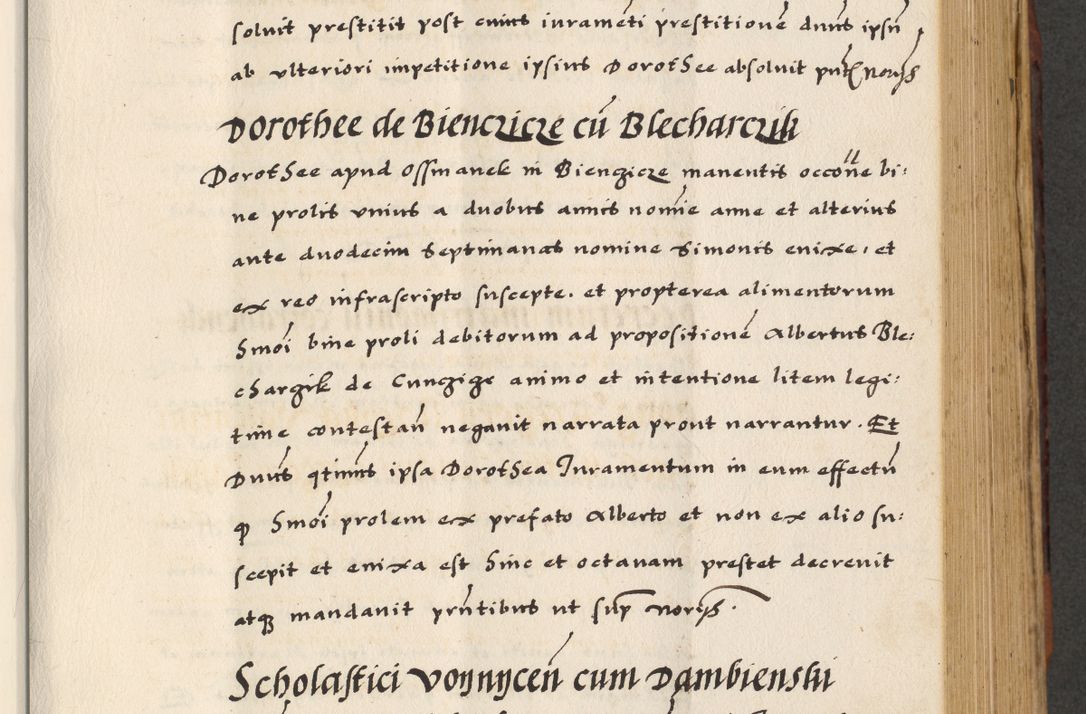 soluit prestitit post cuius iuramẽti prestitionẽ dnũs ipsũ
ab vlteriori impetitione ipsius Dorothee absoluit pntibus Norijs
Dorothee de Bienczicze cũ Blecharczik
Dorothee apud Ossmanek in Bienczicze manentis occoñe bi:
ne prolis vnius a duobus annis nomie anne et alterius
ante duodecim septimanas nomine Simonis enixe, et
ex reo infrascripto suscepte. et propterea alimentorum
hmõi bine proli debitorum ad propositionẽ Albertus Ble:
charzik de Cunczicze animo et intentione litem legi:
time contestañ negauit narrata prout narrantur. Et
Dnũs qtimus ipsa Dorothea Iuramentum in eum effectũ
qp hmõi prolem ex prefato Alberto et non ex alio su:
scepit et enixa est hinc et octauam prestet decreuit
atqz mandauit pñtibus ut sup norijs.
Scholastici Voynyceñ cum Dambienski